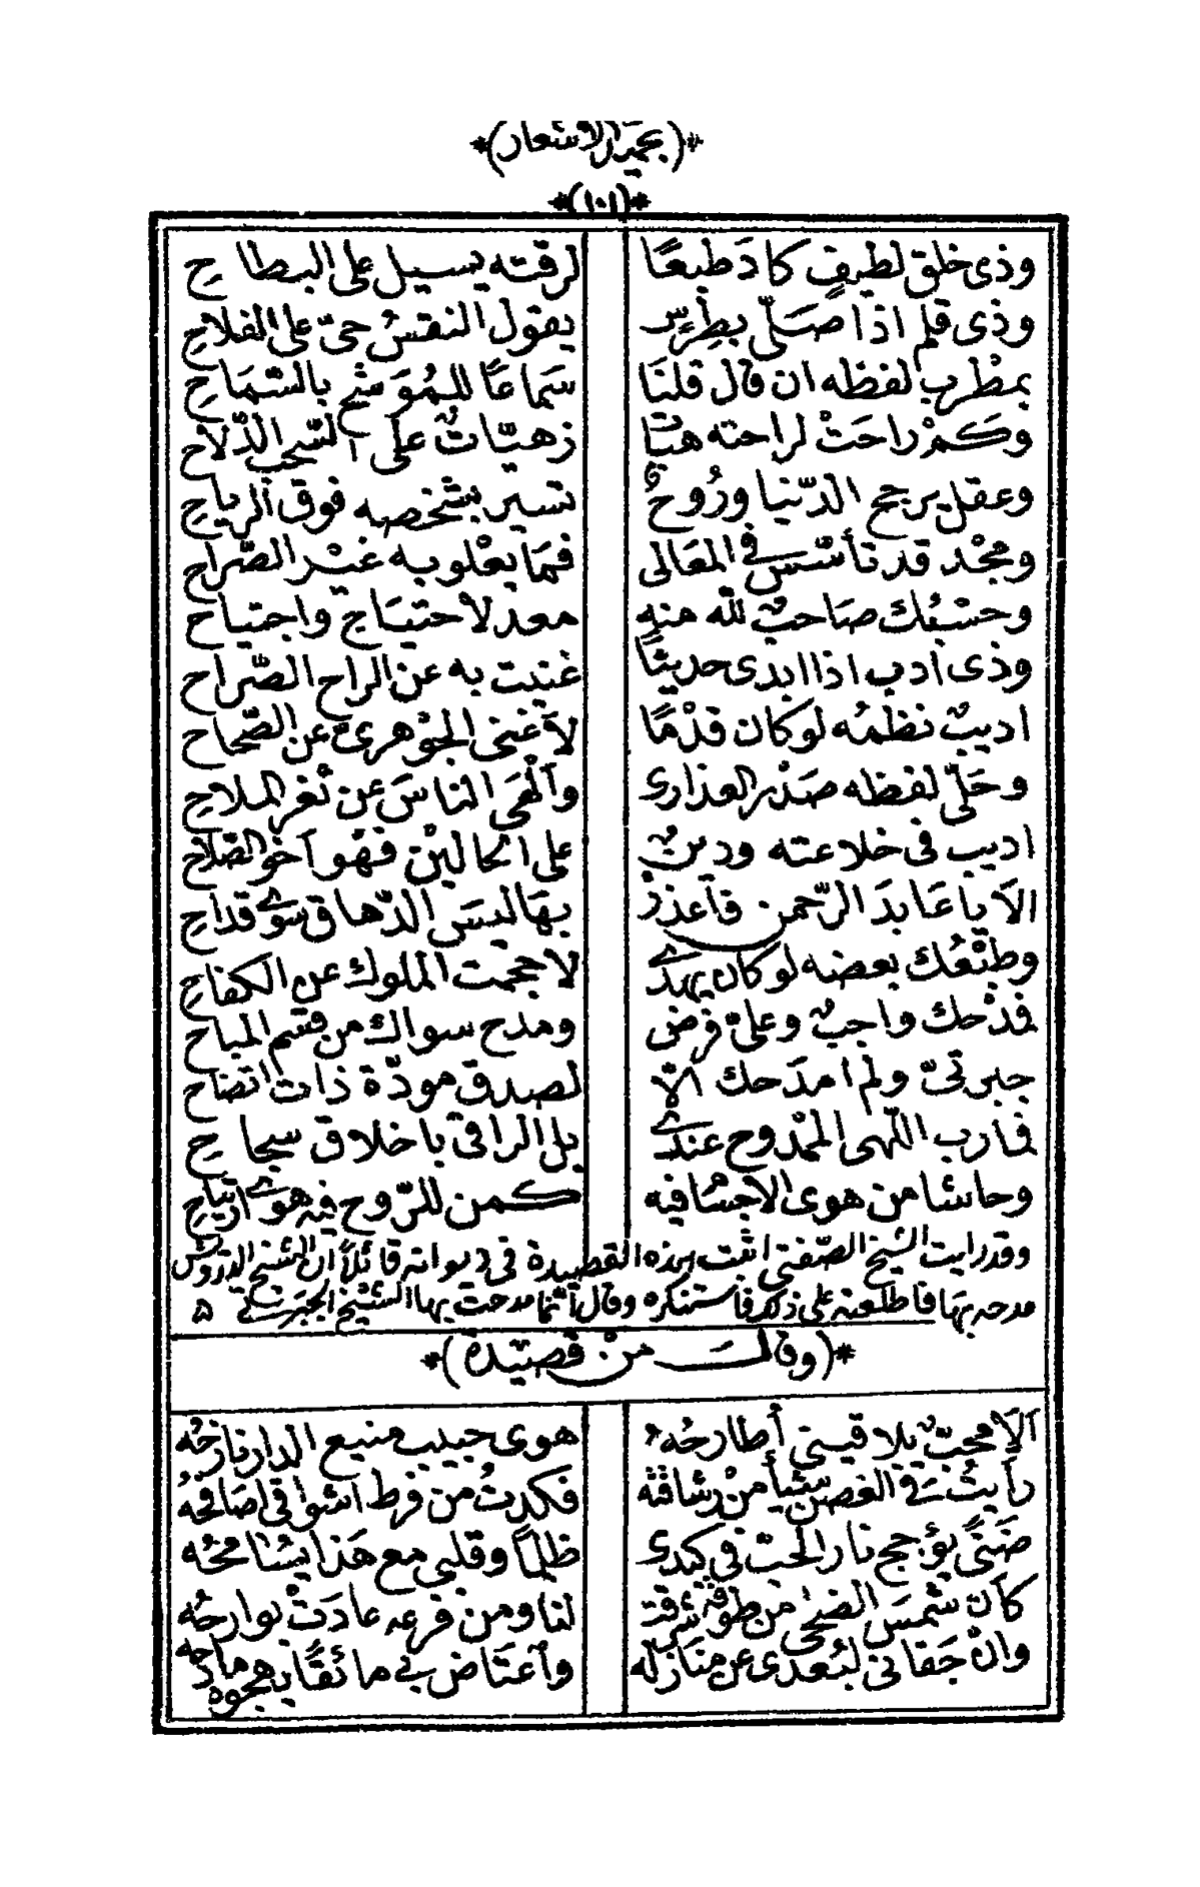 *(بحميد الاشعار)*
*(١٠١)*
وذى خلق لطيفٍ كادَ طبعًا لرقته يسيل على البطاحِ
وذى قلمٍ اذا صَلّى بطِرْسٍ يقول النقسُ حىّ على الفلاحِ
بمطْربِ لفظه ان قال قلنَا سَماعًا للمُوَشحِ بالسّمَاحِ
وكمْ راحَتْ لراحته هبَاتٌ زهيّاتٌ على السُّحب الدّلاح
وعقل يرجح الدّنيا ورُوحٌ تسير بشخصه فوق الرياحِ
ومجْد قد تأسّس فى المعَالى فمَا يعْلو به غيْر الصّراح
وحسْبُك صَاحبٌ لله منه معد لاحتيَاج واجتياح
وذى ادب اذا ابدى حديثًا غنيت به عن الراح الصّراح
اديبٌ نظمُه لو كان قدْمًا لأغنى الجوْهرىّ عن الصّحَاح
وحَلّى لفظه صَدْر العذارى وألْهَى الناسَ عن ثغر الملاحِ
اديب فى خلاعته ودينٌ على الحَاليْن فهْو أخو الصّلاح
الاَ يا عَابدَ الرّحمن فاعذرْ بهَا ليسَ الدّهاق سوى قداح
وطبْعُك بعضه لو كان يهدى لاحجمت الملوك عن الكفاحِ
فمدْحك واجبٌ وعلىّ فرض ومدح سواك من قسم المباح
جبرتىّ ولم امدَحك الاّ لصدق مودّة ذات اتضاح
فارب اللّهى الممْدوح عندى بل الراقى باخلاق سجاحِ
وحاشا من هوى الاجسَام فيه كمن للرّوح فيه هوى ارتياح
وقد رايت الشيخ الصّفتى اثبت هذه القصيدة فى ديوانه قائلاً ان الشيخ الدروش
مدحه بهَا فاطلعته على ذلك فاستنكره وقال انما مدحت بها الشيخ الجبرتى ه
*(وقالـــ من قصيدة)*
ألاَ محبّ يلاقينى أُطارحُه هوى حبيب منيع الدار نازحُه
رأيتُ فى الغصن شيأ منْ رشاقته فكدتُ من فرط اشواقى اصَافحُه
ضنَىً يؤجج نار الحبّ فى كبدى ظلمًا وقلبى مع هَذا يسَامحُه
كأن شمسَ الضحى من طوقه شرقت لنا ومن فرعه عادَتْ بوارحُه
وانْ جَفانى لبُعدى عن منَازله وأعتَاض بى مائقًا يهجوه مادحُه